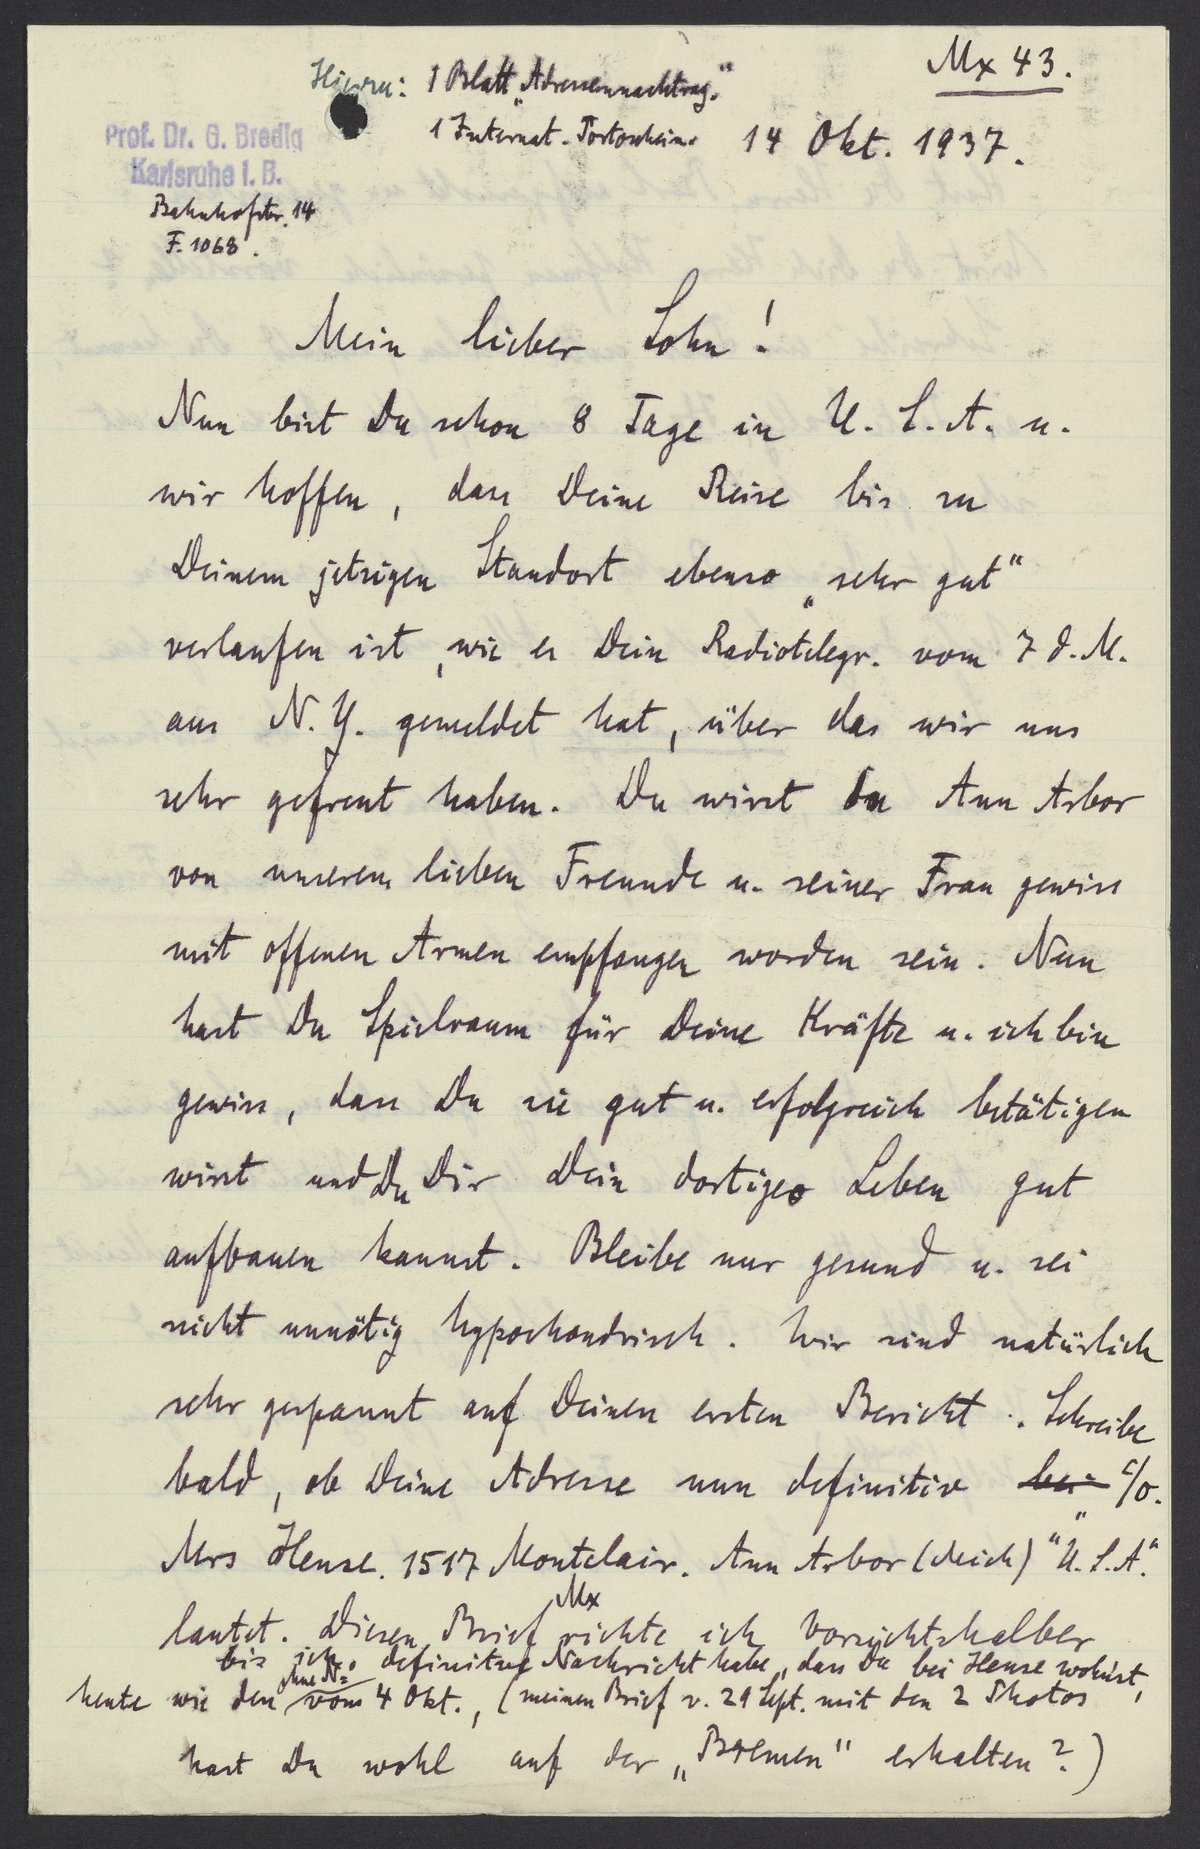 Mx 43.
Hierzu: 1 Blatt „Adressennachtrag."
1 Internat. Portoschein.
14 Okt. 1937.
Prof. Dr. G. Bredig
Karlsruhe i. B.
Bahnhofstr. 14
F. 1068.
Mein lieber Sohn!
Nun bist Du schon 8 Tage in U. S. A. u.
wir hoffen, dass Deine Reise bis zu
Deinem jetzigen Standort ebenso „sehr gut"
verlaufen ist, wie es Dein Radiotelegr. vom 7 d. M.
aus N. Y. gemeldet hat, über das wir uns
sehr gefreut haben. Du wirst in Ann Arbor
von unserem lieben Freunde u. seiner Frau gewiss
mit offenen Armen empfangen worden sein. Nun
hast Du Spielraum für Deine Kräfte u. ich bin
gewiss, dass Du sie gut u. erfolgreich betätigen
wirst und Du Dir Dein dortiges Leben gut
aufbauen kannst. Bleibe nur gesund u. sei
nicht unnötig hypochondrisch. Wir sind natürlich
sehr gespannt auf Deinen ersten Bericht. Schreibe
bald, ob Deine Adresse nun definitiv bei c/o.
Mrs Hense. 1517 Montclair. Ann Arbor (Mich) "U. S. A."
lautet. Diesen Brief Mx richte ich vorsichtshalber
bis ich definitive Nachricht habe, dass Du bei Hense wohnst,
heute wie den ohne No vom 4 Okt., (meinen Brief v. 29 Sept. mit den 2 Photos
hast Du wohl auf der „Bremen" erhalten?)